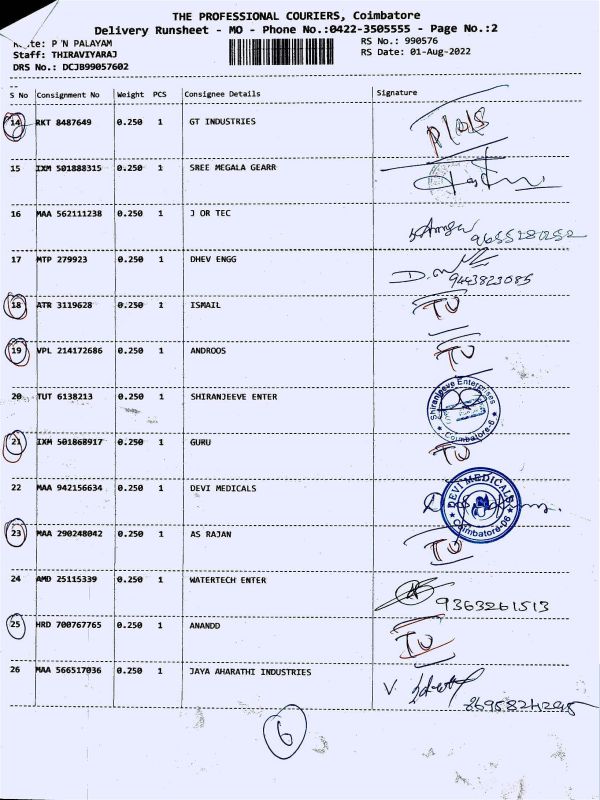 THE PROFESSIONAL COURIERS, Coimbatore
Delivery Runsheet - MO - Phone No.:0422-3505555 - Page No.:2
P N PALAYAM
RS No.: 990576
Staff: THIRAVIYARAJ
RS Date: 01-Aug-2022
DRS No.: DCJB99057602
S No Consignment No Weight PCS Consignee Details Signature
14 RKT 8487649 0.250 1 GT INDUSTRIES
15 IXM 501888315 0.250 1 SREE MEGALA GEARR
16 MAA 562111238 0.250 1 J OR TEC
17 MTP 279923 0.250 1 DHEV ENGG 9443823085
18 ATR 3119628 0.250 1 ISMAIL TU
19 VPL 214172686 0.250 1 ANDROOS TU
20 TUT 6138213 0.250 1 SHIRANJEEVE ENTER Shiranjeeve Enterprises Coimbatore-6
21 IXM 501868917 0.250 1 GURU TU
22 MAA 942156634 0.250 1 DEVI MEDICALS DEVI MEDICALS Coimbatore-06
23 MAA 290248042 0.250 1 AS RAJAN TU
24 AMD 25115339 0.250 1 WATERTECH ENTER 9363261513
25 HRD 700767765 0.250 1 ANANDD TU
26 MAA 566517036 0.250 1 JAYA AHARATHI INDUSTRIES V.
6